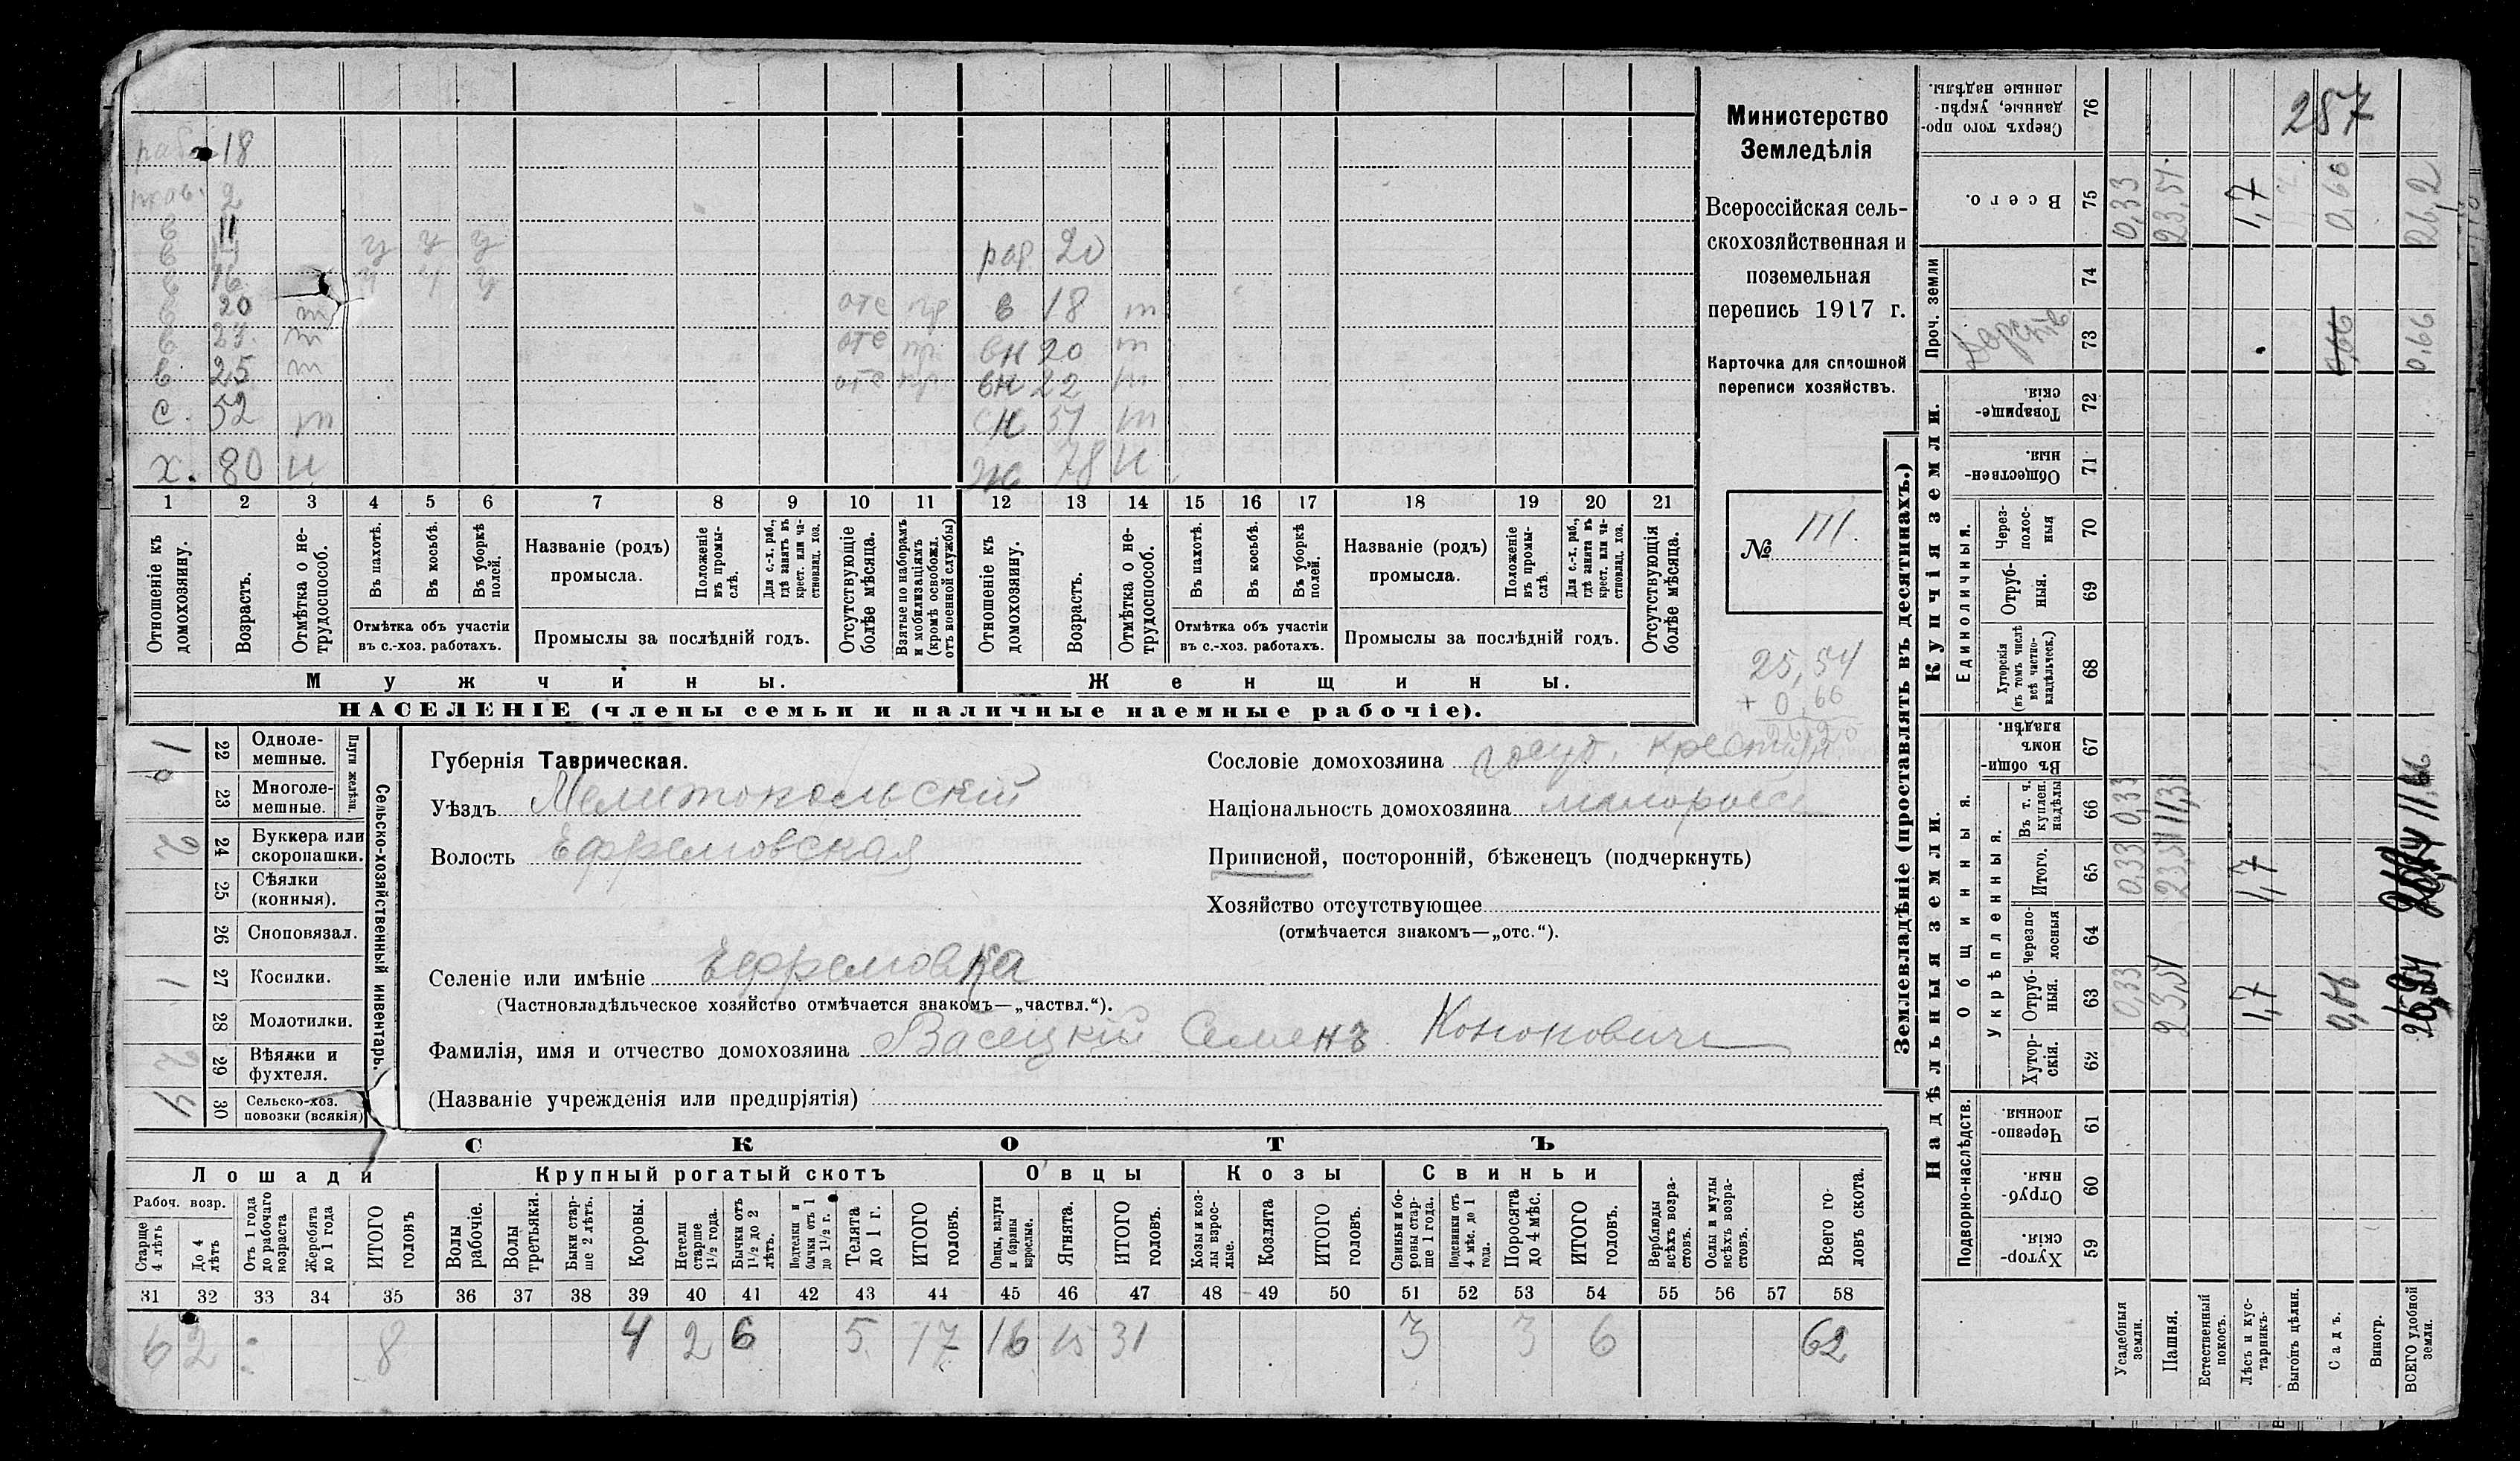 раб. 18
прав. 2
в 11
в у у у раб. 20
в 16 ч ч у
в 20 т отс пр в 18 т
в 23 т отс пр вк 20 т
в. 25 т отс пр вк 22 т
с. 52 т сн 51 т
х. 80 н ж 78 н
1 2 3 4 5 6 7 8 9 10 11 12 13 14 15 16 17 18 19 20 21
Отношеніе къ домохозяину.
Возрастъ.
Отмѣтка о нетрудоспособ.
Въ пахотѣ.
Въ косьбѣ.
Въ уборкѣ полей.
Отмѣтка объ участіи
въ с.-хоз. работахъ.
Названіе (родъ)
промысла.
Положеніе въ промыслѣ.
Для с.-х. раб., гдѣ занятъ въ крест. или частновлад. хоз.
Промыслы за послѣдній годъ.
Отсутствующіе болѣе мѣсяца.
Взятые по наборамъ и мобилизаціямъ (кромѣ освобожд. отъ военной службы)
Отношеніе къ домохозяину.
Возрастъ.
Отмѣтка о нетрудоспособ.
Въ пахотѣ.
Въ косьбѣ.
Въ уборкѣ полей.
Отмѣтка объ участіи
въ с.-хоз. работахъ.
Названіе (родъ)
промысла.
Положеніе въ промыслѣ.
Для с.-х. раб., гдѣ занята въ крест. или частновлад. хоз.
Промыслы за послѣдній годъ.
Отсутствующія болѣе мѣсяца.
Мужчины.
Женщины.
НАСЕЛЕНІЕ (члены семьи и наличные наемные рабочіе).
Министерство
Земледѣлія
Всероссійская сель-
скохозяйственная и
поземельная
перепись 1917 г.
Карточка для сплошной
переписи хозяйствъ.
№ 111.
25,54
+ 0,66
Сельско-хозяйственный инвентарь.
Плуги желѣзн.
22 Одноле-
мешные.
23 Многоле-
мешные.
2 24 Буккера или
скоропашки.
25 Сѣялки
(конныя).
26 Сноповязал.
1 27 Косилки.
28 Молотилки.
2 29 Вѣялки и
фухтеля.
4 30 Сельско-хоз.
повозки (всякія)
Губернія Таврическая.
Уѣздъ Мелитопольскій
Волость Ефремовская
Селеніе или имѣніе Ефремовка
(Частновладѣльческое хозяйство отмѣчается знакомъ—„частвл.“).
Фамилія, имя и отчество домохозяина Васецкій Семенъ Кононовичъ
(Названіе учрежденія или предпріятія)
Сословіе домохозяина госуд. крестьян.
Національность домохозяина малоросс
Приписной, посторонній, бѣженецъ (подчеркнуть)
Хозяйство отсутствующее
(отмѣчается знакомъ—„отс.“).
СКОТЪ
Лошади
Крупный рогатый скотъ
Овцы
Козы
Свиньи
Рабоч. возр.
Старше 4 лѣтъ
До 4 лѣтъ
Отъ 1 года до рабочаго возраста
Жеребята до 1 года
ИТОГО головъ
Волы рабочіе.
Волы третьяки.
Быки старше 2 лѣтъ.
Коровы.
Нетели старше 1½ года.
Бычки отъ 1½ до 2 лѣтъ.
Подтелки и бычки отъ 1 до 1½ г.
Телята до 1 г.
ИТОГО головъ.
Овцы, валухи и бараны взрослые.
Ягнята.
ИТОГО головъ.
Козы и козлы взрослые.
Козлята
ИТОГО головъ.
Свиньи и боровы старше 1 года.
Подсвинки отъ 4 мѣс. до 1 года.
Поросята до 4 мѣс.
ИТОГО головъ.
Верблюды всѣхъ возрастовъ.
Ослы и мулы всѣхъ возрастовъ.
Всего головъ скота.
31 32 33 34 35 36 37 38 39 40 41 42 43 44 45 46 47 48 49 50 51 52 53 54 55 56 57 58
6 2 8 4 2 6 5 17 16 15 31 3 3 6 62
Землевладѣніе (проставлять въ десятинахъ.)
Надѣльныя земли.
Купчія земли.
Проч. земли
Подворно-наслѣдств.
Общинныя.
Укрѣпленныя.
Единоличныя.
Сверхъ того проданные, укрѣпленные надѣлы. 76 287
Всего. 75 0,33 23,51 1,7 0,66 26,2
74
73 0,66 0,66
Товарищескія. 72
Общественныя. 71
Черезполосныя 70
Отрубныя. 69
Хуторскія (въ томъ числѣ всѣ частновладѣльческ.) 68
Въ общинномъ владѣн. 67
Въ т. ч. куплен. надѣлы 66 0,33 11,33 11,66
Итого. 65 0,33 23,51 1,7
Черезполосныя 64
Отрубныя. 63 0,33 23,51 1,7
Хуторскія. 62
Черезполосныя. 61
Отрубныя. 60
Хуторскія. 59
Усадебныя земли.
Пашня.
Естественный покосъ.
Лѣсъ и кустарникъ.
Выгонъ цѣлин.
Садъ.
Виногр.
ВСЕГО удобной земли.